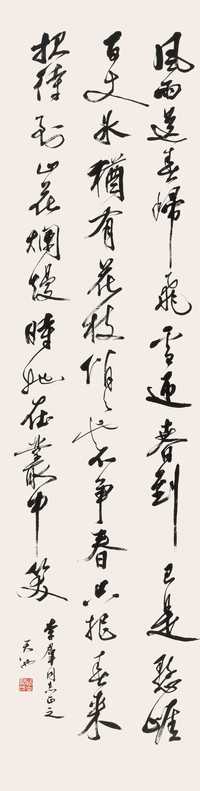 風雨送春歸飛雪迎春到已是懸崖
百丈冰猶有花枝俏俏也不爭春只把春來
報待到山花爛熳時她在叢中笑
李犀同志正之
天池